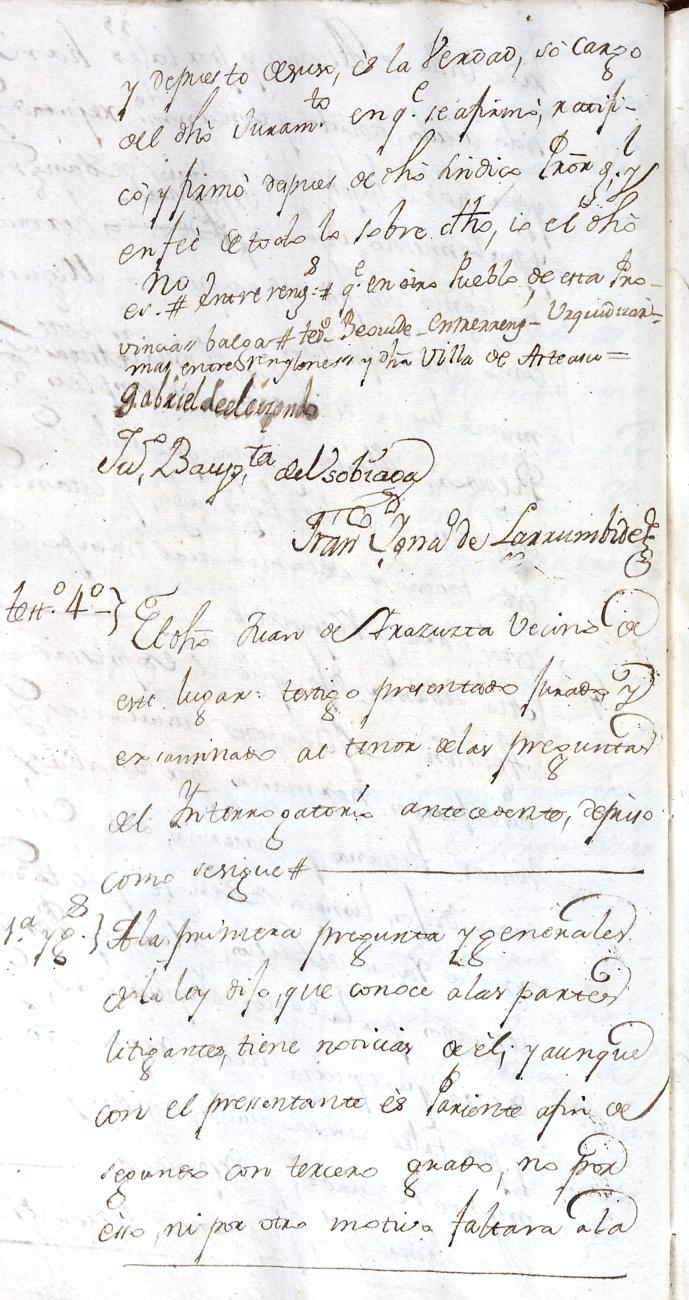 y depuesto desuso, és la Verdad, só cargo
del dhō Juram.to en q.e se afirmó, ratifi-
có, y firmó despues de dhō Sindico Prōr g.l y
en feé de todo lo sobre dthō, io el dhō
es.no # Entre reng.s # q.e en otro Pueblo de esta Pro-
vincia balga # teō Entrerreng
mas entre renglones y dhā Villa de
Gabriel de
Ju.o Baup.ta del Vsobiaga
Fran.co Igna.o de Larrumbide
test.o 4.o }
El dhō Juan de Arazuzta Vecino de
este lugar: testigo presentado jurado y
examinado al tenor delas preguntas
del Ynterrogatorio antecedente, depuso
como sesigue #
1.a y g.s }
Ala primera pregunta y generales
dela ley dijo, que conoce alas partes
litigantes, tiene noticias de él; y aunque
con el pressentante és Pariente afin de
segundo con tercero grado, no por
ésso, ni por otro motivo faltara ala